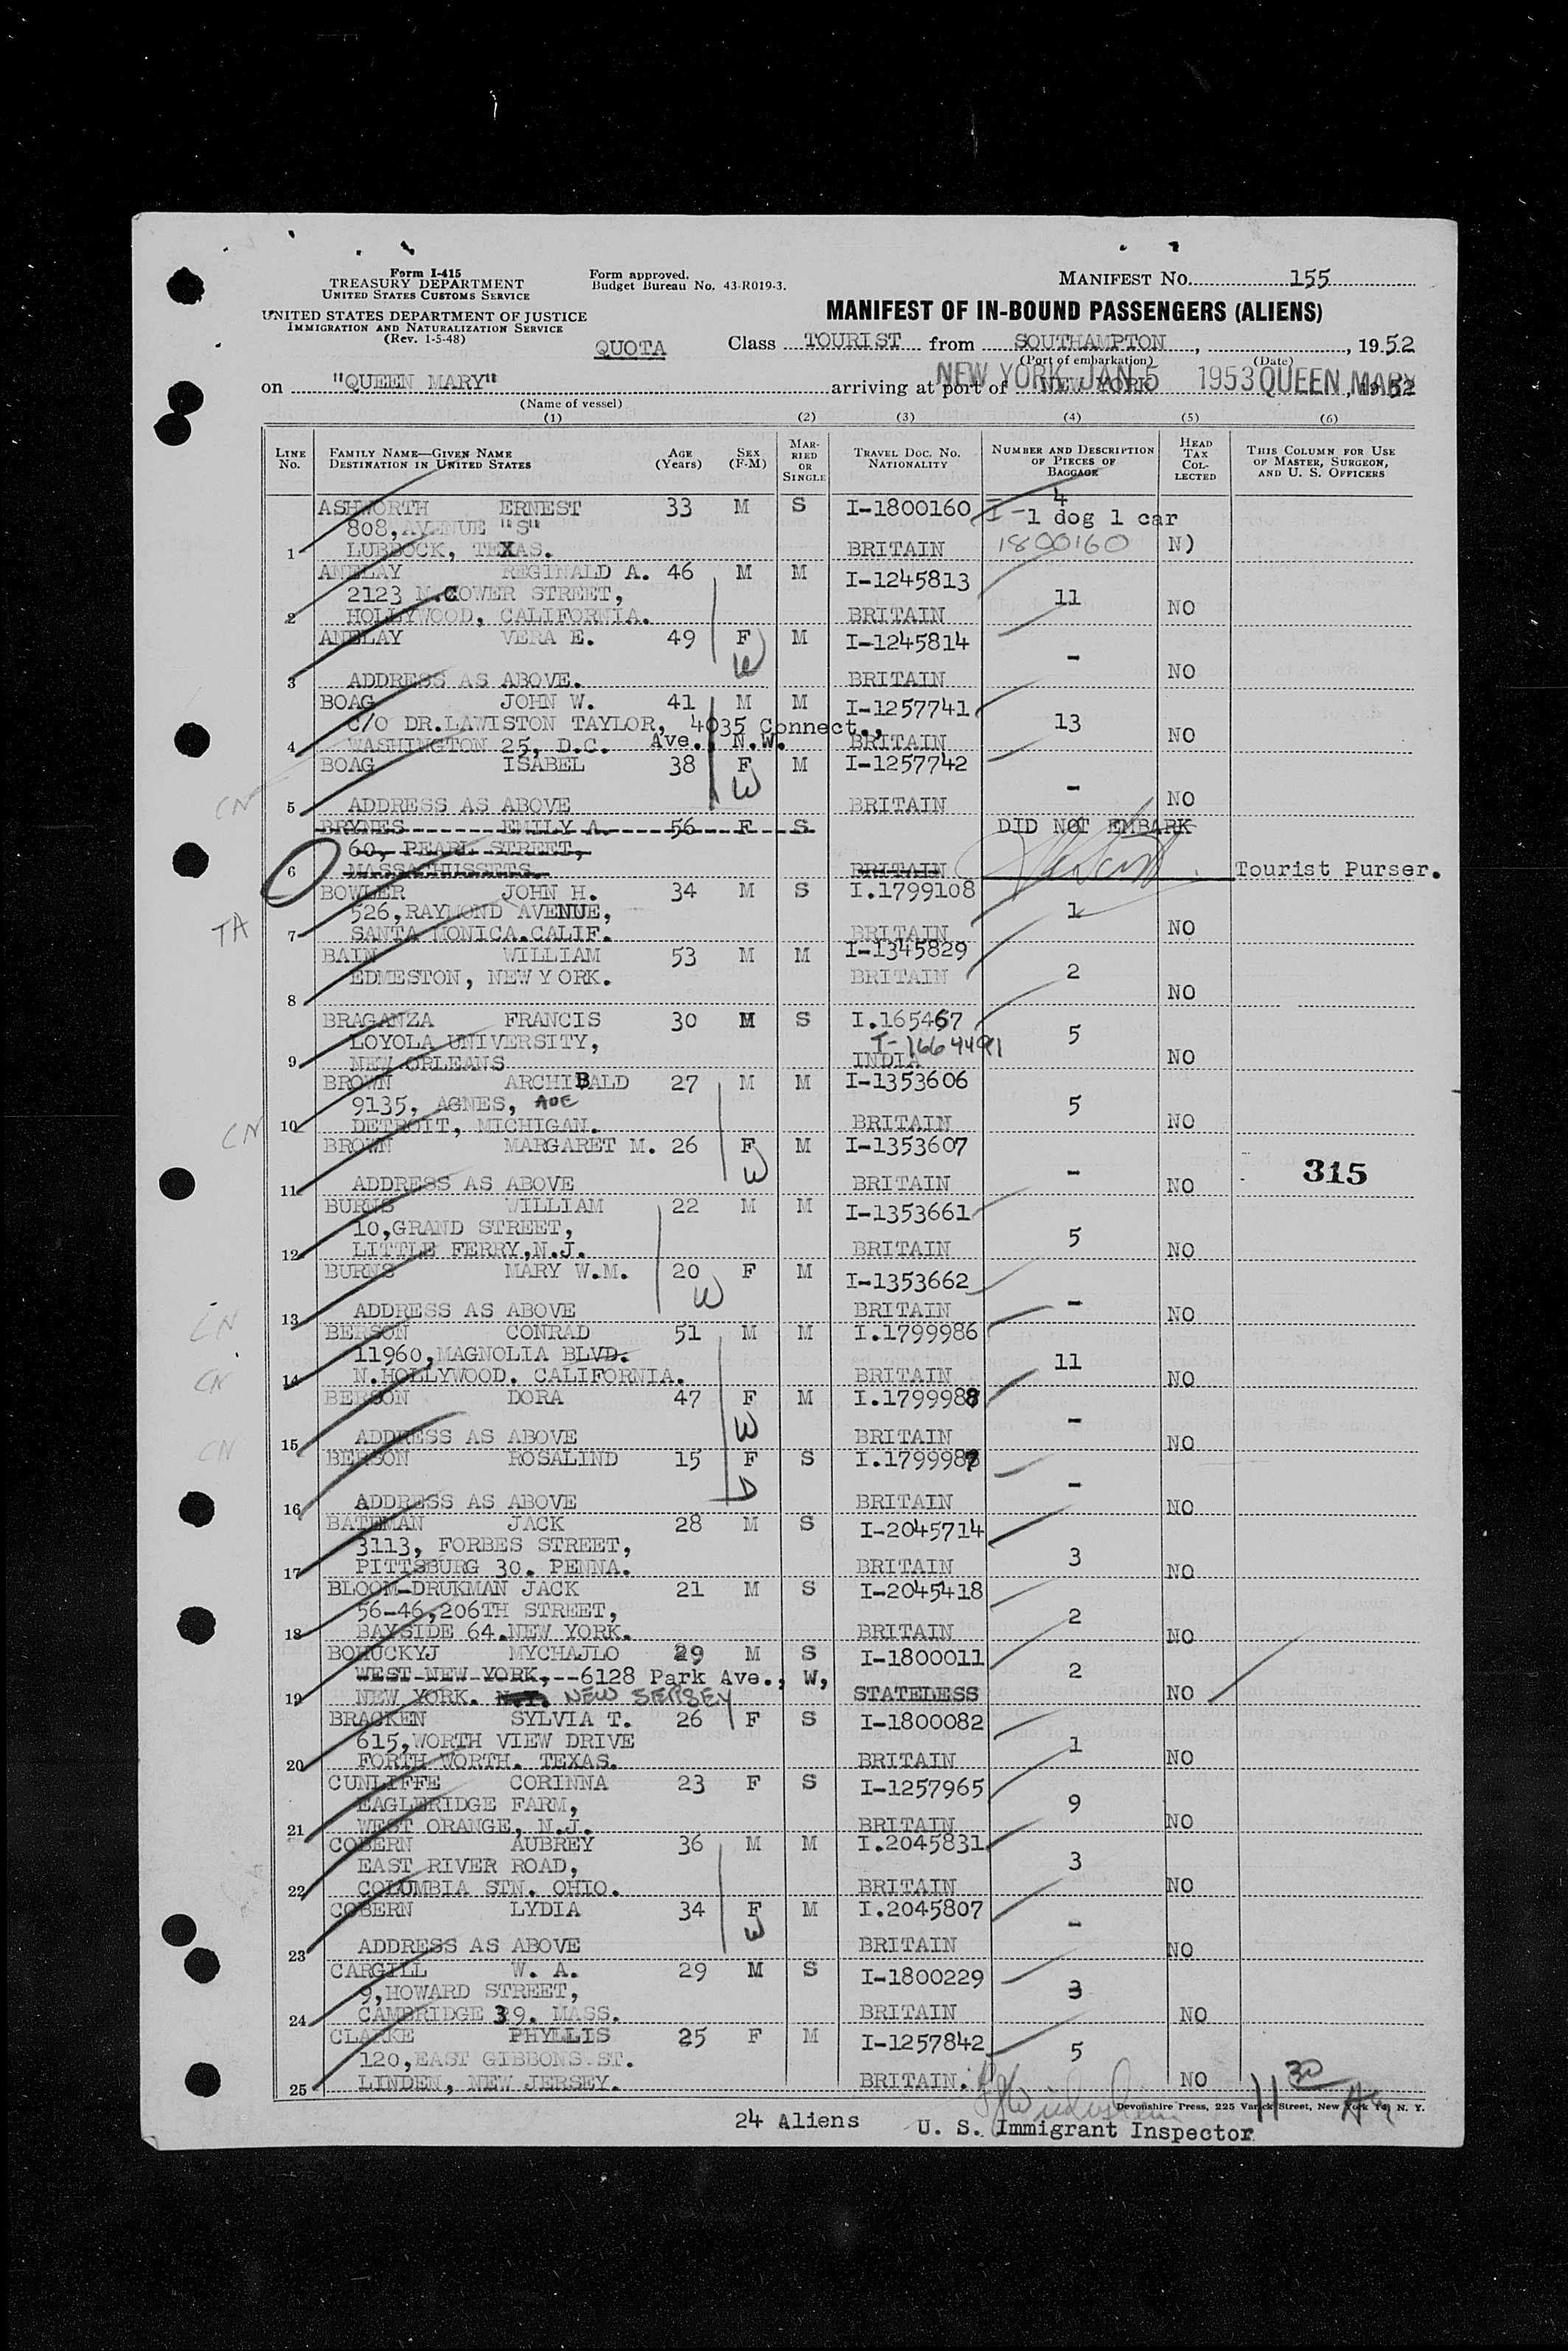 Form I-415
TREASURY DEPARTMENT
UNITED STATES CUSTOMS SERVICE
UNITED STATES DEPARTMENT OF JUSTICE
IMMIGRATION AND NATURALIZATION SERVICE
(Rev. 1-5-48)
Form approved.
Budget Bureau No. 43-R019-3.
MANIFEST No. 155
MANIFEST OF IN-BOUND PASSENGERS (ALIENS)
QUOTA Class TOURIST from SOUTHAMPTON, , 1952
(Port of embarkation) (Date)
NEW YORK JAN 5 1953 QUEEN MARY
on "QUEEN MARY" arriving at port of NEW YORK , 1952
(Name of vessel)
(1) (2) (3) (4) (5) (6)
LINE No. FAMILY NAME—GIVEN NAME DESTINATION IN UNITED STATES AGE (Years) SEX (F-M) MARRIED OR SINGLE TRAVEL DOC. NO. NATIONALITY NUMBER AND DESCRIPTION OF PIECES OF BAGGAGE HEAD TAX COLLECTED THIS COLUMN FOR USE OF MASTER, SURGEON, AND U. S. OFFICERS
ASHWORTH ERNEST 33 M S I-1800160 4
808, AVENUE "S" I - 1 dog 1 car
1 LUBBOCK, TEXAS. BRITAIN 1800160 N)
ANELAY REGINALD A. 46 M M I-1245813
2123 N.GOWER STREET, 11
2 HOLLYWOOD, CALIFORNIA. BRITAIN NO
ANELAY VERA E. 49 F M I-1245814
W -
3 ADDRESS AS ABOVE. BRITAIN NO
BOAG JOHN W. 41 M M I-1257741
C/O DR.LAWISTON TAYLOR, 4035 Connect., 13
4 WASHINGTON 25, D.C. Ave. N.W. BRITAIN NO
BOAG ISABEL 38 F M I-1257742
W -
CN 5 ADDRESS AS ABOVE BRITAIN NO
BRYNES EMILY A. 56 F S DID NOT EMBARK
60, PEARL STREET,
6 MASSACHUSSETS. BRITAIN Tourist Purser.
BOWLER JOHN H. 34 M S I.1799108
526,RAYMOND AVENUE, 1
TA 7 SANTA MONICA.CALIF. BRITAIN NO
BAIN WILLIAM 53 M M I-1345829
EDMESTON, NEW YORK. BRITAIN 2
8 NO
BRAGANZA FRANCIS 30 M S I.165467
LOYOLA UNIVERSITY, I-1664491 5
9 NEW ORLEANS INDIA NO
BROWN ARCHIBALD 27 M M I-1353606
9135, AGNES, AVE 5
CN 10 DETROIT, MICHIGAN. BRITAIN NO
BROWN MARGARET M. 26 F M I-1353607
W - 315
11 ADDRESS AS ABOVE BRITAIN NO
BURNS WILLIAM 22 M M I-1353661
10,GRAND STREET, 5
12 LITTLE FERRY,N.J. BRITAIN NO
BURNS MARY W.M. 20 F M I-1353662
W -
CN 13 ADDRESS AS ABOVE BRITAIN NO
BERSON CONRAD 51 M M I.1799986
11960,MAGNOLIA BLVD. 11
CN 14 N.HOLLYWOOD. CALIFORNIA. BRITAIN NO
BERSON DORA 47 F M I.1799988
W -
CN 15 ADDRESS AS ABOVE BRITAIN NO
BERSON ROSALIND 15 F S I.1799987
D -
16 ADDRESS AS ABOVE BRITAIN NO
BATEMAN JACK 28 M S I-2045714
3113, FORBES STREET, 3
17 PITTSBURG 30. PENNA. BRITAIN NO
BLOOM-DRUKMAN JACK 21 M S I-2045418
56-46,206TH STREET, 2
18 BAYSIDE 64.NEW YORK. BRITAIN NO
BOHUCKYJ MYCHAJLO 29 M S I-1800011
WEST NEW YORK,--6128 Park Ave., W, 2
19 NEW YORK. N.Y. NEW JERSEY STATELESS NO
BRACKEN SYLVIA T. 26 F S I-1800082
615,WORTH VIEW DRIVE 1
20 FORTH WORTH. TEXAS. BRITAIN NO
CUNLIFFE CORINNA 23 F S I-1257965
EAGLERIDGE FARM, 9
21 WEST ORANGE, N.J. BRITAIN NO
COBERN AUBREY 36 M M I.2045831
EAST RIVER ROAD, 3
22 COLUMBIA STN. OHIO. BRITAIN NO
COBERN LYDIA 34 F M I.2045807
W -
23 ADDRESS AS ABOVE BRITAIN NO
CARGILL W. A. 29 M S I-1800229
9,HOWARD STREET, 3
24 CAMBRIDGE 39. MASS. BRITAIN NO
CLARKE PHYLLIS 25 F M I-1257842
120,EAST GIBBONS ST. 5
25 LINDEN, NEW JERSEY. BRITAIN. NO 11 30
Devonshire Press, 225 Varick Street, New York 14, N. Y.
24 Aliens U. S. Immigrant Inspector